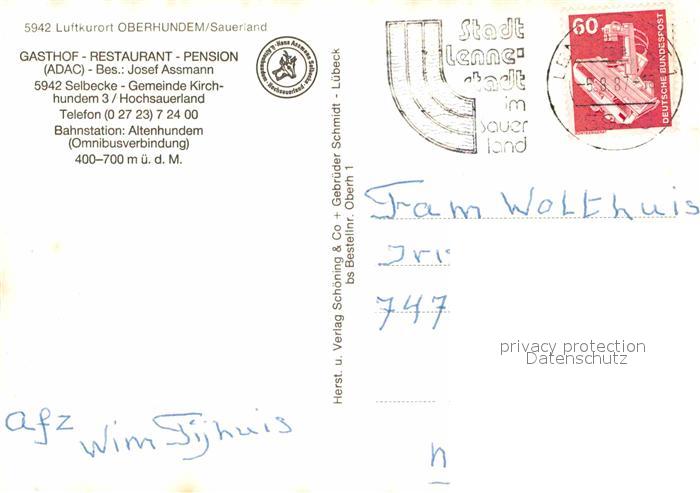 5942 Luftkurort OBERHUNDEM/Sauerland
GASTHOF - RESTAURANT - PENSION
(ADAC) - Bes.: Josef Assmann
5942 Selbecke - Gemeinde Kirch-
hundem 3 / Hochsauerland
Telefon (0 27 23) 7 24 00
Bahnstation: Altenhundem
(Omnibusverbindung)
400–700 m ü. d. M.
Herst. u. Verlag Schöning & Co + Gebrüder Schmidt - Lübeck
bs Bestellnr. Oberh 1
Stadt
Lenne-
stadt
im
sauer
land
60
DEUTSCHE BUNDESPOST
Fam Wolthuis
Iri
747
privacy protection
Datenschutz
n
afz
Wim Tijhuis